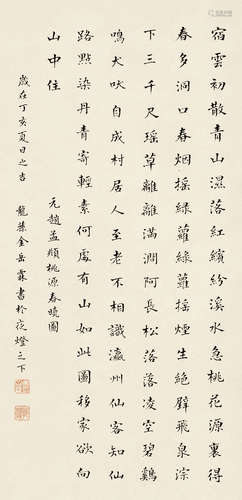 宿雲初散青山濕落紅繽紛溪水急桃花源裏得
春多洞口春烟摇綠蘿綠蘿摇煙生絕壁飛泉淙
下三千尺瑶草離離滿澗阿長松落落凌空碧鷄
鳴犬吠自成村居人至老不相識瀛州仙客知仙
路點染丹青寄輕素何處有山如此圖移家欲向
山中住
元趙孟頫桃源春曉圖
歲在丁亥夏日之吉
龍蓀金岳霖書於夜燈之下